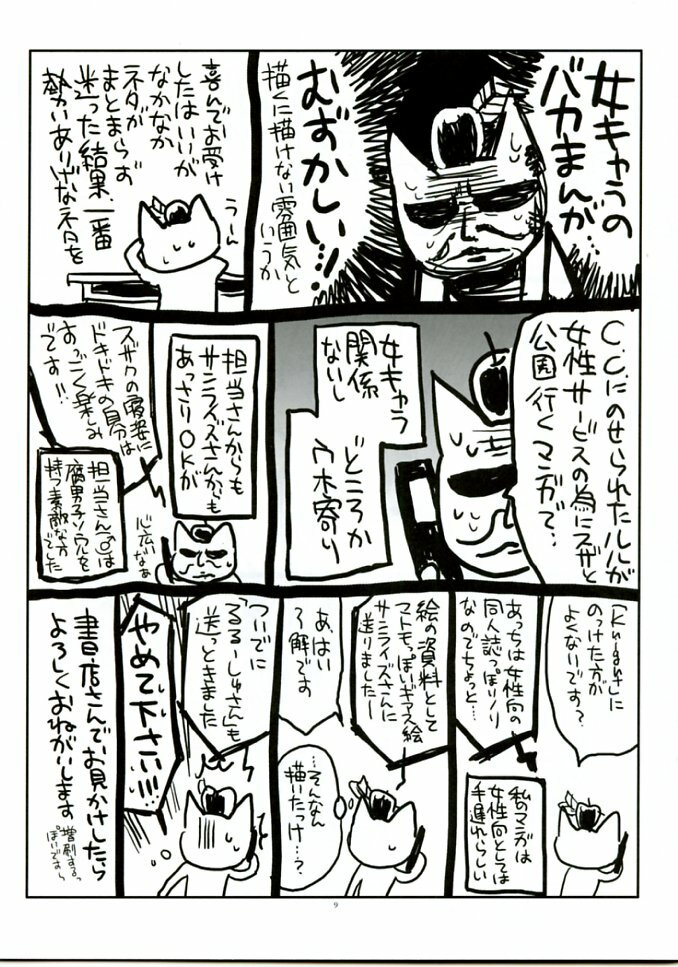 女キャラの
バカまんが
むずかしい…!!
描くに描けない雰囲気と
いうか
喜んでお受け
したはいいが
なかなか
ネタが
まとまらず
迷った結果、一番
勢いありげなネタを
うーん
C.C.にのせられたルルが
女性サービスの為にスザと
公園行くマンガで…
女キャラ
関係
ないし
どころか
ウホ寄り
担当さんからも
サンライズさんからも
あっさりOKが
スザクの
ドキドキの自分は
すっごく楽しみ
です!!…
担当さん(♂)は
腐男子ソウルを
持つ素敵な方
でした
心広いなぁ
「Knight」に
のっけた方が
よくないです?
私のマンガは
女性向としては
手遅れらしい
あっちは女性向の
同人誌っぽいノリ
なのでちょっと…
絵の資料として
マトモっぽいギアス絵
サンライズさんに
送りましたー
あ、はい
了解です
…そんなん
描いたっけ…?
ついでに
「るるーしゅさん」も
送っときました
やめて下さい!!!
書店さんでお見かけしたら
よろしくおねがいします
増刷するっ
ぽいですら
9